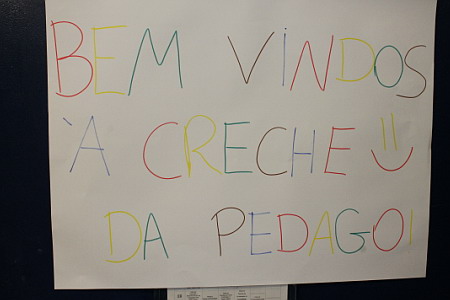 BEM VINDOS
À CRECHE =)
DA PEDAGOI